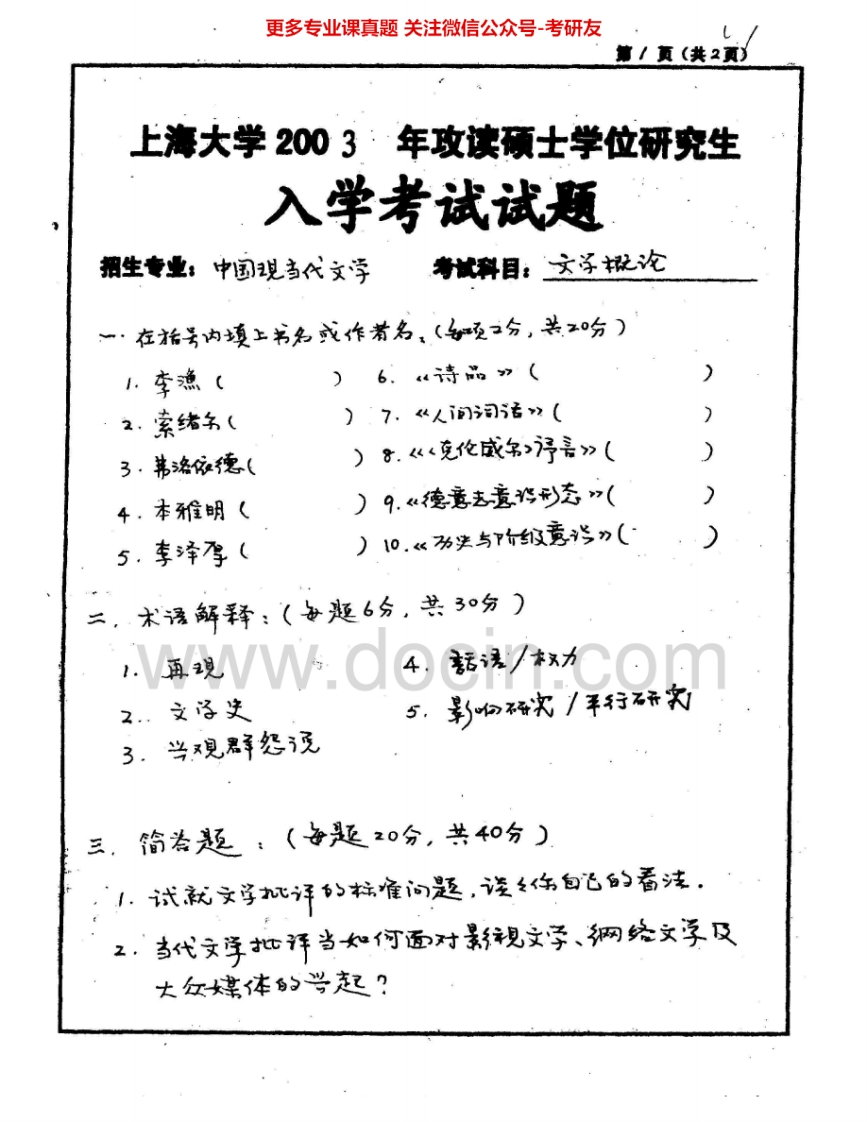 更多专业课真题 关注微信公众号-考研友
第1页(共2页)
上海大学2003 年攻读硕士学位研究生
入学考试试题
招生专业：中国现当代文学 考试科目：文学概论
一. 在括号内填上书名或作者名。(每项2分，共20分)
1. 李渔 ( ) 6. 《诗品》 ( )
2. 索绪尔 ( ) 7. 《人间词话》 ( )
3. 弗洛依德 ( ) 8. 《〈克伦威尔〉序言》 ( )
4. 本雅明 ( ) 9. 《德意志意识形态》 ( )
5. 李泽厚 ( ) 10. 《历史与阶级意识》 ( )
二. 术语解释：(每题6分，共30分)
1. 再现 4. 话语/权力
2. 文学史 5. 影响研究/平行研究
3. 兴观群怨说
www.docin.com
三. 简答题：(每题20分，共40分)
1. 试就文学批评的标准问题，谈谈你自己的看法.
2. 当代文学批评当如何面对影视文学、网络文学及
大众媒体的兴起?